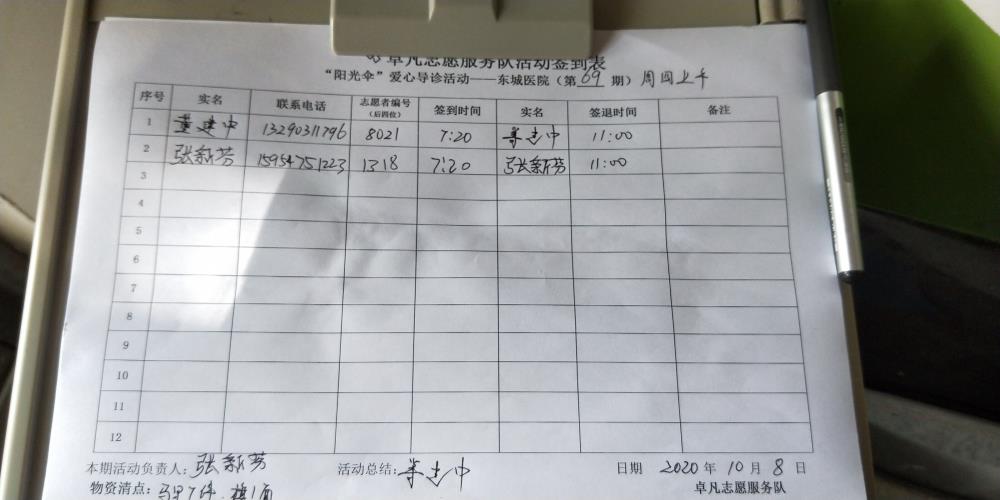 卓凡志愿服务队活动签到表
“阳光伞”爱心导诊活动——东城医院（第69期）周四上午
序号 实名 联系电话 志愿者编号（后四位） 签到时间 实名 签退时间 备注
1 董建中 13290311796 8021 7:20 董建中 11:00
2 张新芳 15954751223 1318 7:20 张新芳 11:00
3
4
5
6
7
8
9
10
11
12
本期活动负责人：张新芳 活动总结：董建中 日期 2020年10月8日
物资清点： 卓凡志愿服务队